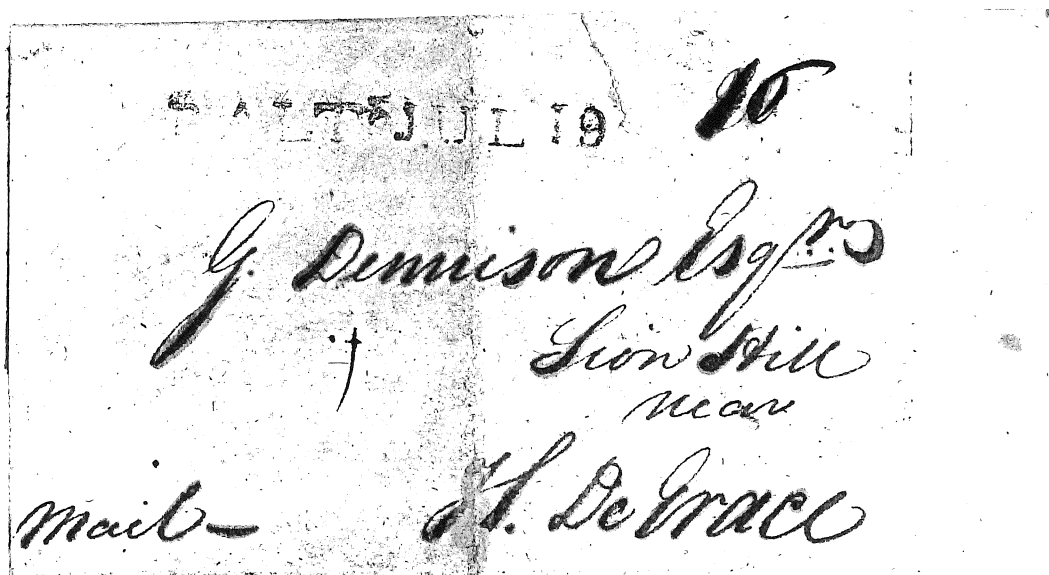 BALTR JUL 19 10
G. Dennison Esqr.
Sion Hill
near
Mail— H. De Grace